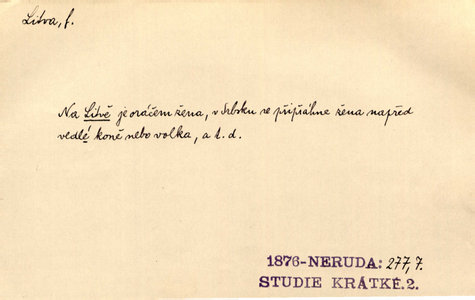 Litva, f.
Na Litvě je oráčem žena, v Srbsku se připřáhne žena napřed
vedlé koně nebo volka, a t. d.
1876-NERUDA: 277, 7.
STUDIE KRÁTKÉ. 2.